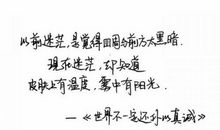 以前迷茫，总觉得四周与前方太黑暗．
现在迷茫，却知道
皮肤上有温度，雾中有阳光．
—《世界不一定还予以真诚》